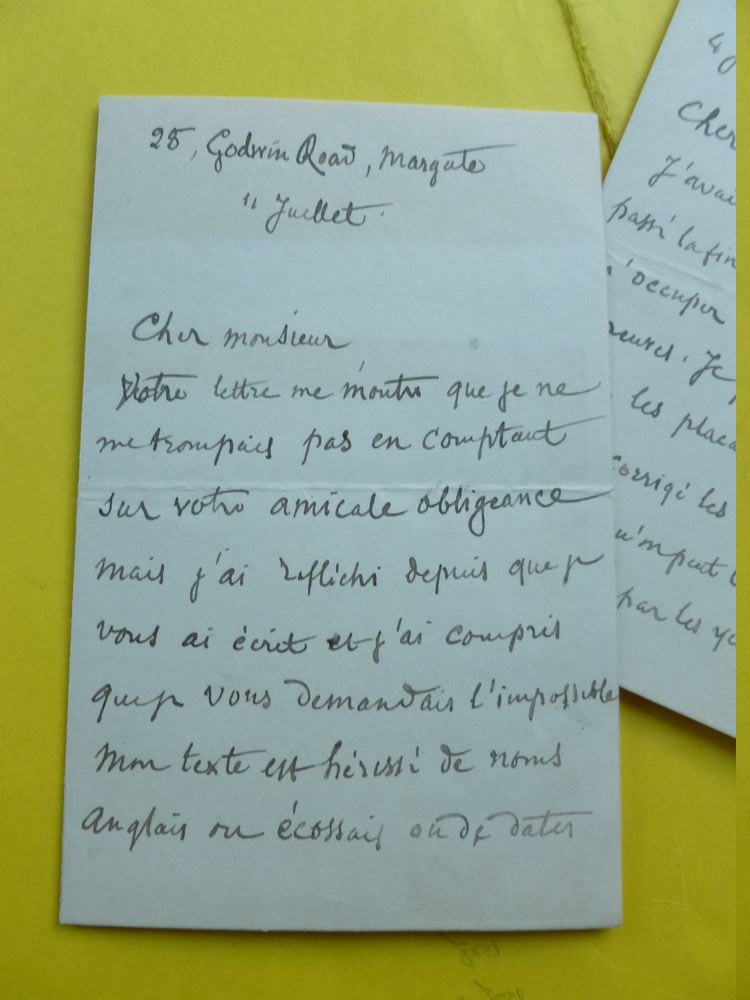 25, Godwin Road, Margate
11 Juillet.
Cher monsieur
Votre lettre me montre que je ne
me trompais pas en comptant
sur votre amicale obligeance
mais j'ai réflichi depuis que je
vous ai écrit et j'ai compris
que je vous demandais l'impossible
Mon texte est hérissé de noms
Anglais ou écossais ou de dates
Cher
J'avai
passé la fin
'occuper
reuves. Je
les placa
corrigé les
par les